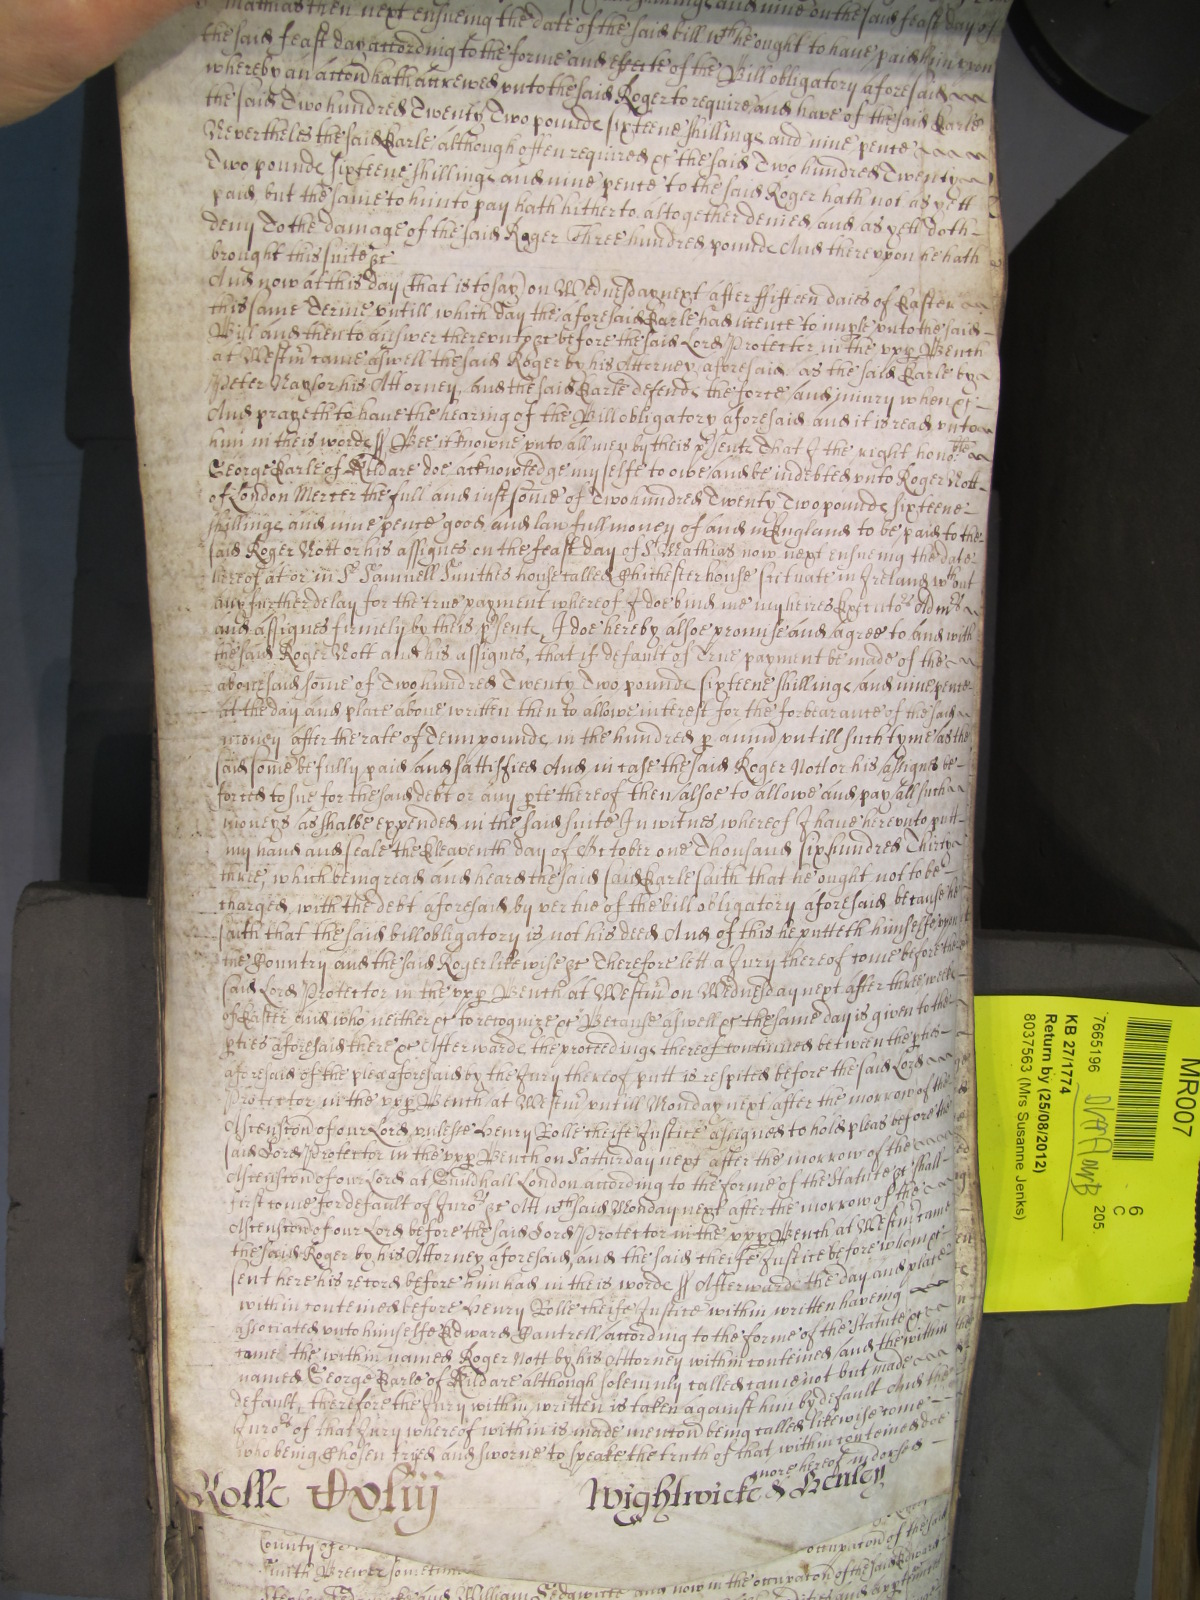 Mathias then next ensueing the date of the said bill wch he ought to have paid him upon
the said feast day according to the forme and effecte of the Bill obligatory aforesaid
whereby an accon hath accrewed unto the said Roger to require and have of the said Earle
the said Two hundred Twenty Two pounds sixteene shillings and nine pence
Nevertheles the said Earle although often required &c the said Two hundred Twenty
Two pounds sixteene shillings and nine pence to the said Roger hath not as yett
paid but the same to him to pay hath hitherto altogether denied and as yett doth
deny To the damage of the said Roger Three hundred pounds And thereupon he hath
brought this suite &c
And now at this day that is to say on Wednesday next after fifteen daies of Easter
this same Terme untill which day the aforesaid Earle had licence to imple unto the said
Bill and then to answer thereunto &c before the said Lord Protector in the upp Bench
at Westm came aswell the said Roger by his Attorney aforesaid as the said Earle by
Peter Naylor his Attorney and the said Earle defends the force and injury when &c
And prayeth to have the hearing of the Bill obligatory aforesaid and it is read unto
him in theis words // Bee it knowne unto all men by theis psents That I the right honoble
George Earle of Kildare doe acknowledge my selfe to owe and be indebted unto Roger Nott
of London Mercer the full and just some of Two hundred Twenty Two pounds sixteene
shillings and nine pence good and lawfull money of and in England to be paid to the
said Roger Nott or his assignes on the feast day of St Mathias now next ensueing the date
hereof at or in Sr Samuell Smithes house called Chichester house scituate in Ireland wthout
any further delay for the true payment whereof I doe bind me my heires Executors Admrs
and assignes firmely by theis psents I doe hereby alsoe promise and agree to and with
the said Roger Nott and his assignes, that if default of true payment be made of the
abovesaid some of Two hundred Twenty Two pounds sixteene shillings and nine pence
at the day and place above written then to allowe interest for the forbearance of the said
money after the rate of Tenn pounds in the hundred p annu untill such tyme as the
said some be fully paid and sattisfied And in case the said Roger Nott or his assignes be
forced to sue for the said debt or any pte thereof then alsoe to allowe and pay all such
moneys as shalbe expended in the said suite In witnes whereof I have hereunto putt
my hand and seale the Eleaventh day of October one Thousand six hundred Thirty
three, which being read and heard the said Earle saith that he ought not to be
charged with the debt aforesaid by vertue of the bill obligatory aforesaid because he
saith that the said bill obligatory is not his deed And of this he putteth himselfe upon
the Country and the said Roger likewise &c Therefore lett a Jury thereof come before the
said Lord Protector in the upp Bench at Westm on Wednesday next after three weeks
of Easter and who neither &c to recognize &c Because aswell &c the same day is given to the
pties aforesaid there &c Afterwards the proceedings thereof continued betweene the pties
aforesaid of the plea aforesaid by the Jury thereof putt is respited before the said Lord
Protector in the upp Bench at Westm untill Monday next after the morrow of the
Ascension of our Lord unlesse Henry Rolle cheife Justice assigned to hold pleas before the
said Lord Protector in the upp Bench on Satturday next after the morrow of the
Ascension of our Lord at Guildhall London according to the forme of the Statute &c shall
first come for default of Juros &c Att wch said Monday next after the morrow of the
Ascension of our Lord before the said Lord Protector in the upp Bench at Westm came
the said Roger by his Attorney aforesaid and the said cheife Justice before whom &c
sent here his record before him had in theis words // Afterwards the day and place
within conteined before Henry Rolle cheife Justice within written haveing
associated unto himselfe Edward Cantrell according to the forme of the Statute &c
came the within named Roger Nott by his Attorney within conteined and the within
named George Earle of Kildare although solemnly called came not but made
default, therefore the Jury within written is taken against him by default And the
Juros of that Jury whereof within is made mencon being called likewise come
who being Chosen tryed and sworne to speake the truth of that within conteined doe
more hereof indorsed
Rolle Dxliij Wightwicke & Henley
County of
occupacon of the said
Smith Brewer sometime
and William Sedgwicke and now in the occupacon of the said Edward
MR007
6
C
7665196 205
KB 27/1774
Return by (25/08/2012)
8037563 (Mrs Susanne Jenks)